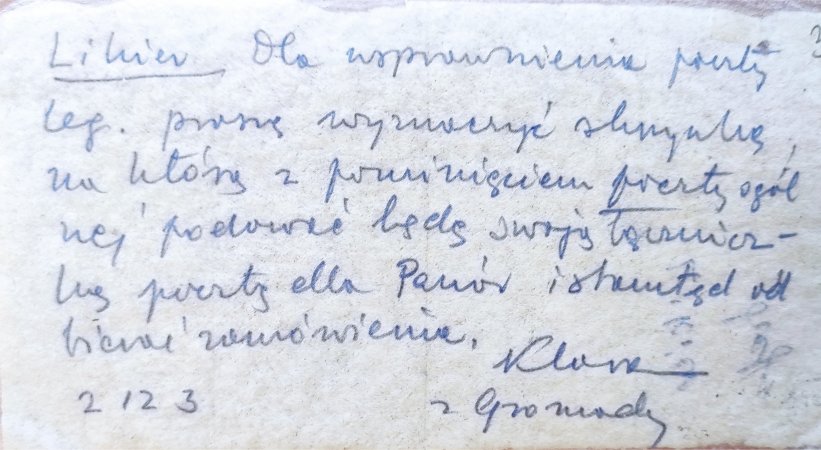 Likier Dla usprawnienia poczty
leg. proszę wyznaczyć skrzynkę,
na którą z pominięciem poczty ogól
nej podawać będę swoją łącznicz-
ką pocztę dla Panów i stamtąd od
bierać zamówienia.
Klara
2 12 3 z Gromady